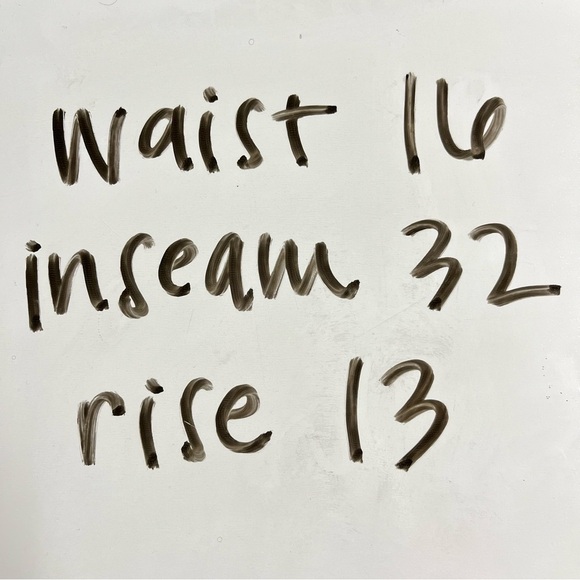 waist 16
inseam 32
rise 13